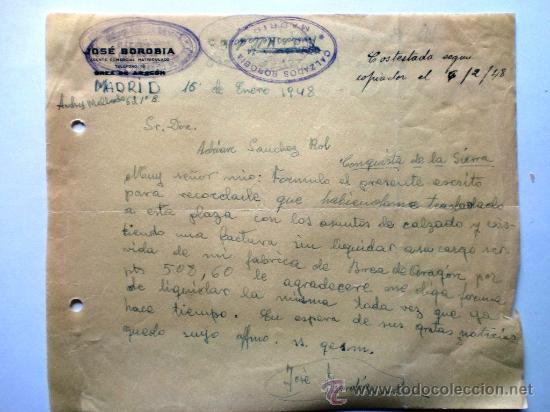 JOSÉ BOROBIA
AGENTE COMERCIAL MATRICULADO
TELEFONO 16
BREA DE ARAGON
CALZADOS BOROBIA
MADRID
Contestado segun
copiador el 6/2/48
MADRID 16 de Enero 1948
Andres Mellado
Sr. Don
Adrian Sanchez Rol
Conquista de la Sierra
Muy señor mio: Formulo el presente escrito
para recordarle que habiendome trasladado
a esta plaza con los asuntos de calzado y exis-
tiendo una factura sin liquidar a su cargo ser-
vida de mi fabrica de Brea de Aragon por
pts 508,60 le agradecere me diga forma
de liquidar la misma toda vez que ya
hace tiempo. En espera de sus gratas noticias
quedo suyo affmo. ss. qesm.
José Borobia
www.todocoleccion.net